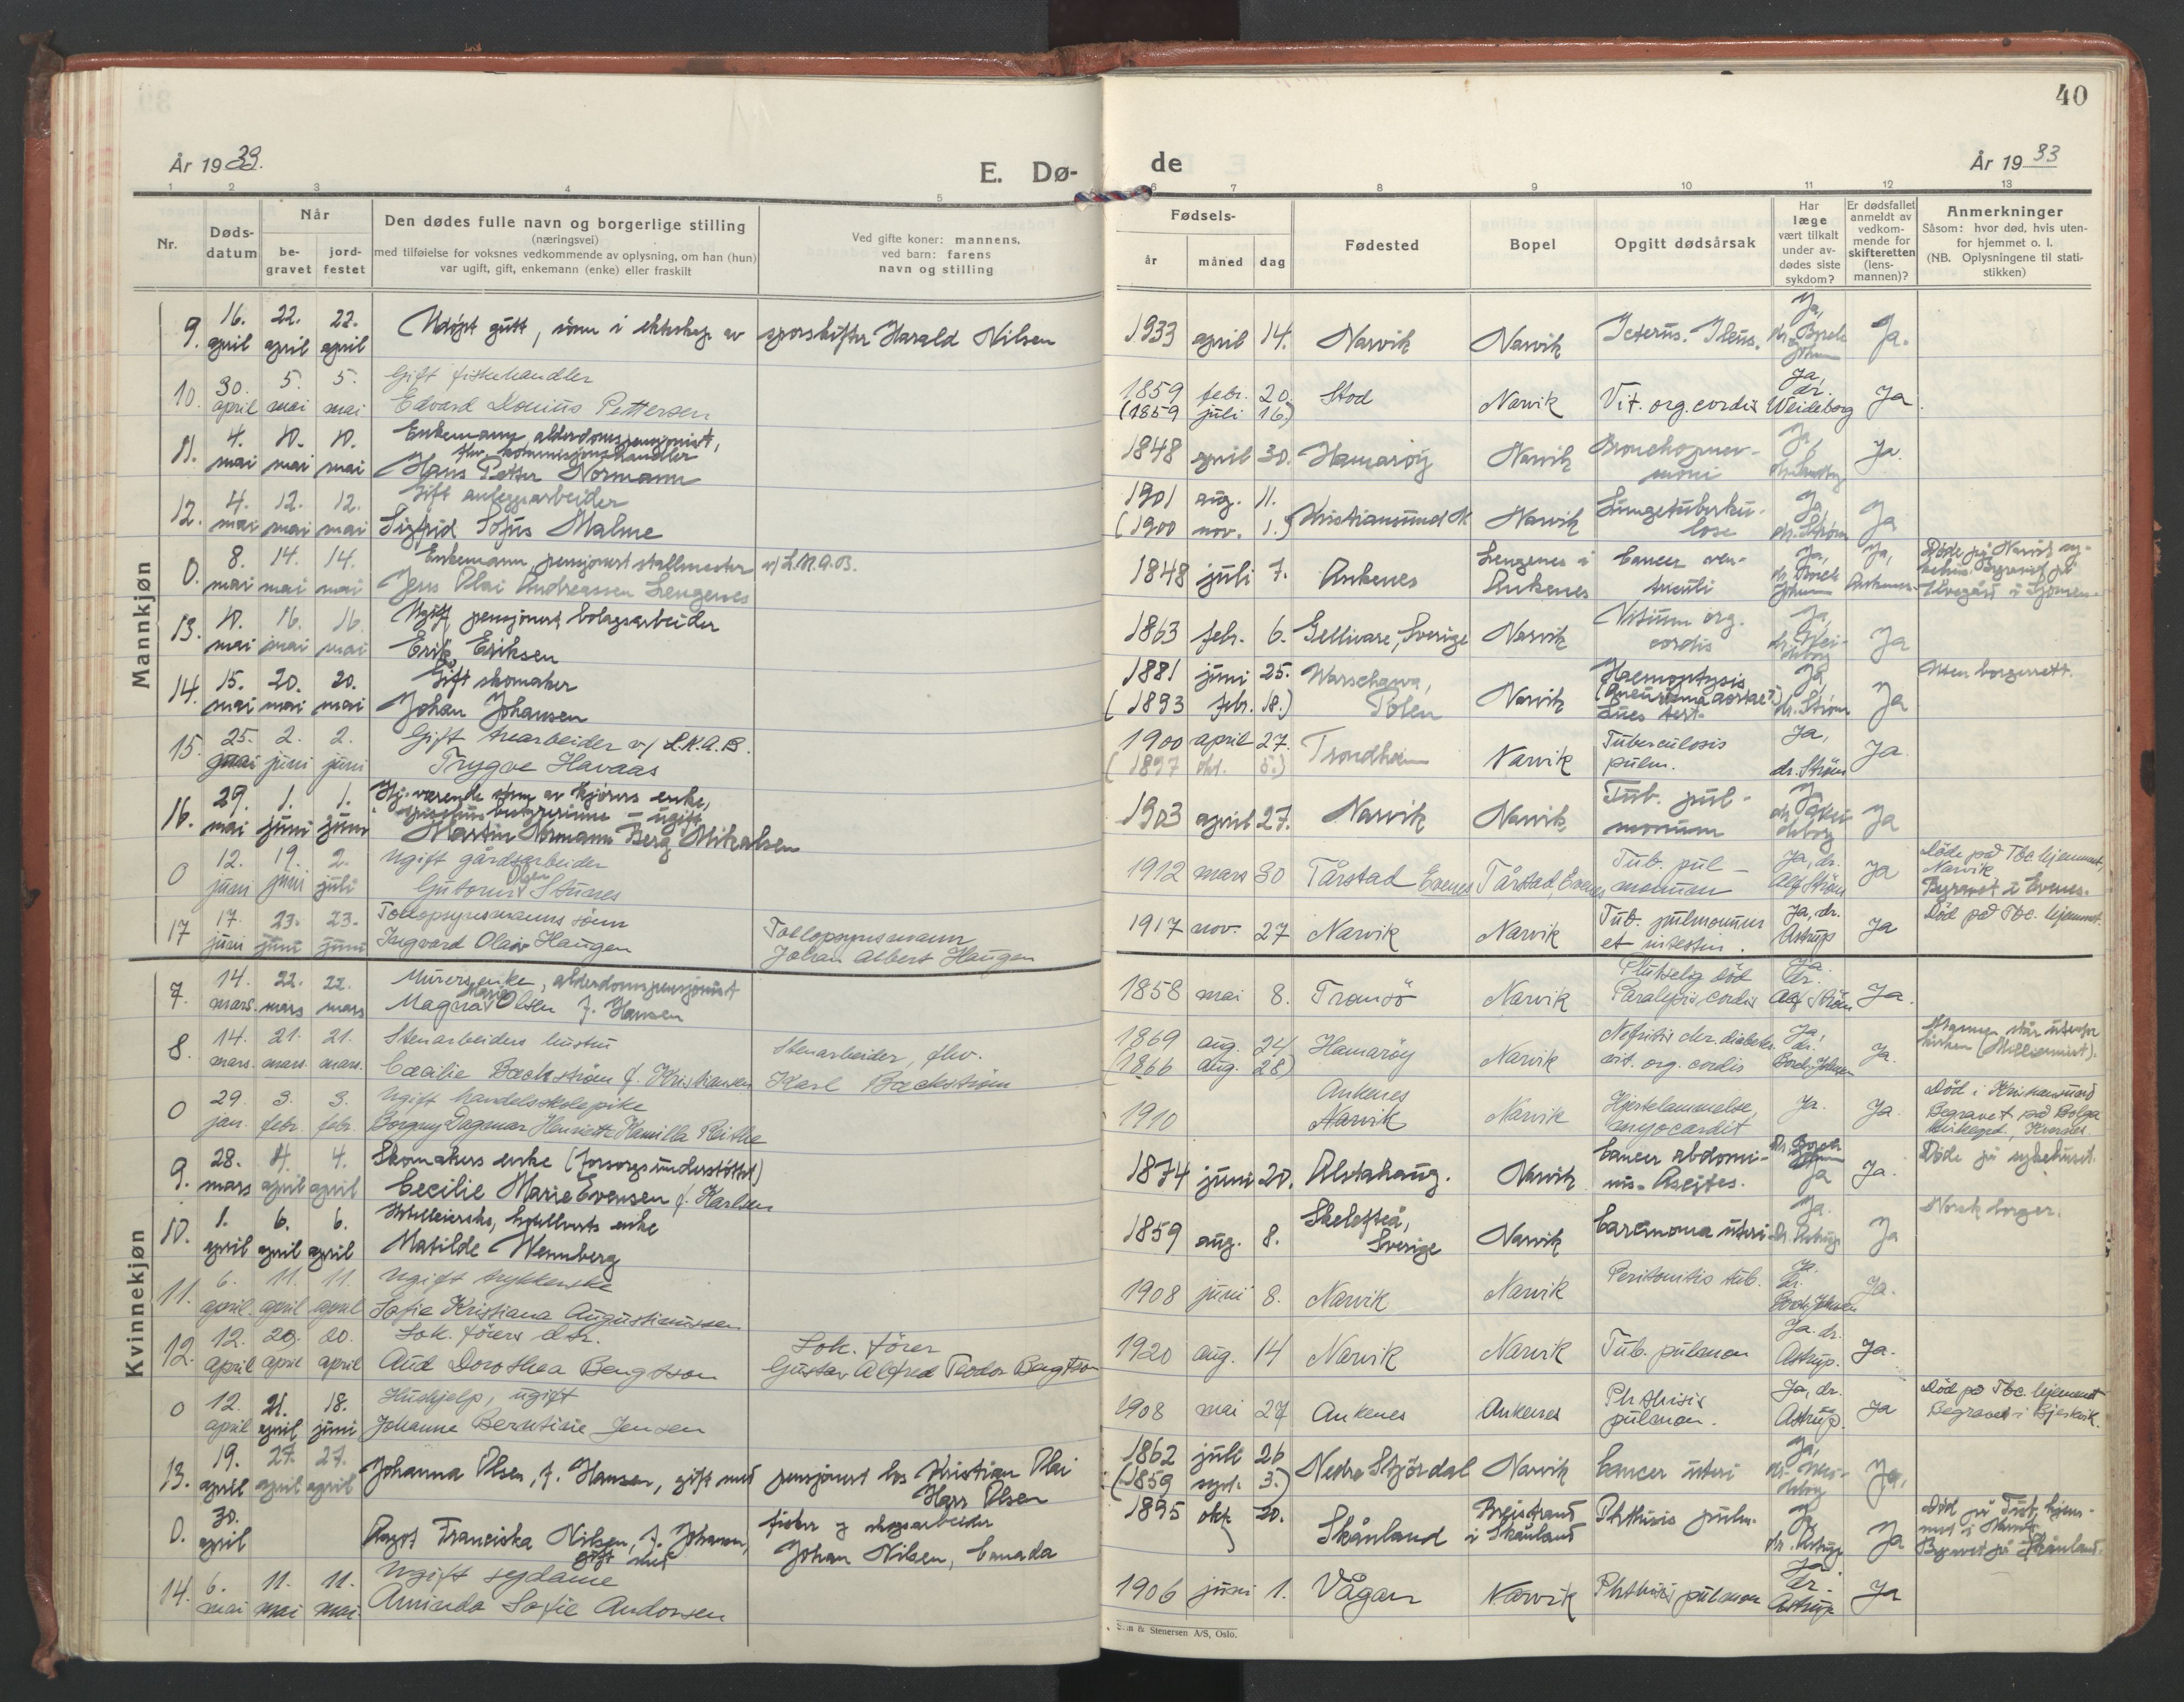 40
År 1933.
E. Dø-
de
År 1933
1 2 3 4 5 6 7 8 9 10 11 12 13
Nr.
Døds-
datum
Når
be-
gravet
jord-
festet
Den dødes fulle navn og borgerlige stilling
(næringsvei)
med tilføielse for voksnes vedkommende av oplysning, om han (hun)
var ugift, gift, enkemann (enke) eller fraskilt
Ved gifte koner: mannens,
ved barn: farens
navn og stilling
Fødsels-
år
måned
dag
Fødested
Bopel
Opgitt dødsårsak
Har
læge
vært tilkalt
under av-
dødes siste
sykdom?
Er dødsfallet
anmeldt av
vedkom-
mende for
skifteretten
(lens-
mannen)?
Anmerkninger
Såsom: hvor død, hvis uten-
for hjemmet o. l.
(NB. Oplysningene til stati-
stikken)
Mannkjøn
9. 16. april 22. april 22. april Udøpt gutt, sønn i ekteskap av sporskifter Harald Nilsen 1933 april 14. Narvik Narvik Icterus. Ileus. Ja, dr. Borch Johnsen Ja.
10. 30. april 5. mai 5. mai Gift fiskehandler
Edvard Donius Pettersen 1859 febr. 20. (1859 juli 16.) Stod Narvik Vit. org. cordis Ja, dr. Weideborg Ja
11. 4. mai 10. mai 10. mai Enkemann, alderdomspensjonist,
fhv. kommisjonshandler
Hans Petter Normann 1848 april 30. Hamarøy Narvik Bronchopnev-
moni Ja, Ja.
12. 4. mai 12. mai 12. mai Gift anleggsarbeider
Sigfrid Sofus Malme 1901 aug. 11. (1900 nov. 1.) Kristiansund N. Narvik Lungetuberku-
lose Ja, dr. Strøm Ja
0. 8. mai 14. mai 14. mai Enkemann, pensjonert stallmester v/ L.K.A.B.
Jens Olai Andreassen Lengenes 1848 juli 7. Ankenes Lengenes i
Ankenes Cancer ven-
triculi Ja, dr. Borch Johnsen Ja, Ankenes. Døde på Narvik sy-
kehus. Begravet på
Elvegård i Skjomen.
13. 10. mai 16. mai 16. mai Ugift pensjonert bolagsarbeider
Erik Eriksen 1863 febr. 6. Gellivare, Sverige Narvik Vitium org.
cordis Ja, dr. Wei-
deborg Ja
14. 15. mai 20. mai 20. mai Gift skomaker
Johan Johansen 1881 juni 25. (1893 febr. 18.) Warschawa,
Polen Narvik Haemoptysis
(Aneurisma aortae?)
Lues tert. Ja, dr. Strøm Ja Uten borgerrett.
15. 25. mai 2. juni 2. juni Gift arbeider v/ L.K.A.B.
Trygve Havaas 1900 april 27. (1897 okt. 5.) Trondheim Narvik Tuberculosis
pulm. Ja, dr. Strøm Ja
16. 29. mai 1. juni 1. juni Hj. værende sønn av kjørers enke,
ugift
Martin Normann Berg Mikalsen 1903 april 27. Narvik Narvik Tub. pul-
monum Ja, dr. Wei-
deborg Ja
0 12. juni 19. juni 2. juli Ugift gårdsarbeider
Gutorm Olsen Stunes 1912 mars 30 Tårstad Evenes Tårstad, Evenes Tub. pul-
monum Ja, dr. Alf Strøm Ja Døde på Tbc. hjemmet,
Narvik
Begravet i Evenes.
17 17. juni 23. juni 23. juni Tollopsynsmanns sønn
Ingvard Olav Haugen Tollopsynsmann
Johan Albert Haugen 1917 nov. 27 Narvik Narvik Tub. pulmonum
et intestin. Ja, dr. Astrup Ja Død på Tbc. hjemmet.
Kvinnekjøn
7. 14. mars. 22. mars 22. mars Murers enke, alderdomspensjonist
Magna Marie Olsen f. Hansen 1858 mai 8. Tromsö Narvik Plutselig död
Paralysis cordis Ja. dr. Alf Strøm Ja.
8. 14. mars. 21. mars. 21. mars. Stenarbeiders hustru
Cæcilie Bæckström f. Kristiansen Stenarbeider, fhv.
Karl Bæckström 1869 aug. 24 (1866 aug. 28) Hamarøy Narvik Nefritis chr. diabetes.
vit. org. cordis Ja, dr. Borch Johnsen Ja. Mannen står utenfor
kirken
0 29. jan. 3. febr. 3. febr. Ugift handelsskolepike
Borgny Dagmar Henriette Kamilla Reithe 1910 Ankenes
Narvik Narvik Hjertelammelse,
myocardit Ja. Ja. Död i Kristiansund
Begravet på
kirkegd.,
9. 28. mars 4. april 4. april Skomakers enke (forsorgsunderstøttet)
Cecilie Marie Evensen f. Karlsen 1874 juni 20. Alstahaug. Narvik Cancer abdomi-
nis. Ascites. Dr. Borch Johnsen Ja Ja. Døde på sykehuset.
10. 1. april 6. april 6. april Hotelleierske, hotellverts enke
Matilde Wennberg 1859 aug. 8. Skelefteå,
Sverige Narvik Carcinoma uteri Ja. Dr. Astrup Ja Norsk borger.
11. 6. april. 11. april 11. april Ugift
Sofie Kristiana Augustinussen 1908 juni 8. Narvik Narvik Peritonitis tub. Ja. dr. Borch Johnsen Ja.
12. 12. april 20. april 20. april Lok. förers dtr.
Aud Dorothea Bengtson Lok. förer
Gustav Alfred Teodor Bengtson 1920 aug. 14 Narvik Narvik Tub. pulmon Ja. dr. Astrup. Ja.
0 12. april 21. april 18. juni Hushjelp, ugift
Johanne Berntine Jensen 1908 mai 27 Ankenes Ankenes Phthisis
pulmon. Ja, dr. Astrup. Ja Död på Tbc. hjemmet
Begravet i Bjerkvik.
13. 19. april 27. april 27. april Johanna Olsen, f. Hansen, gift med pensjonert los Kristian Olai
Hars Olsen 1862 juli 26 (1859 sept. 3.) Nedre Stjördal Narvik Cancer uteri Ja, dr. Wei-
deborg Ja,
0. 30. april Ragot Franciska Nilsen, f. Johansen,
gift med fisker og skogsarbeider
Johan Nilsen, Canada 1895 okt. 20. Skånland Breistrand
i Skånland Phthisis pulm. Ja, dr. Astrup Ja Død på Tub. hjem-
met i Narvik.
Begravet på Skånland.
14. 6. mai 11. mai 11. mai. Ugift sydame
Aminda Sofie Andorsen 1906 juni 1. Vågan Narvik Phthisis pulmon Ja. dr. Astrup Ja
& Stenersen A/S, Oslo.